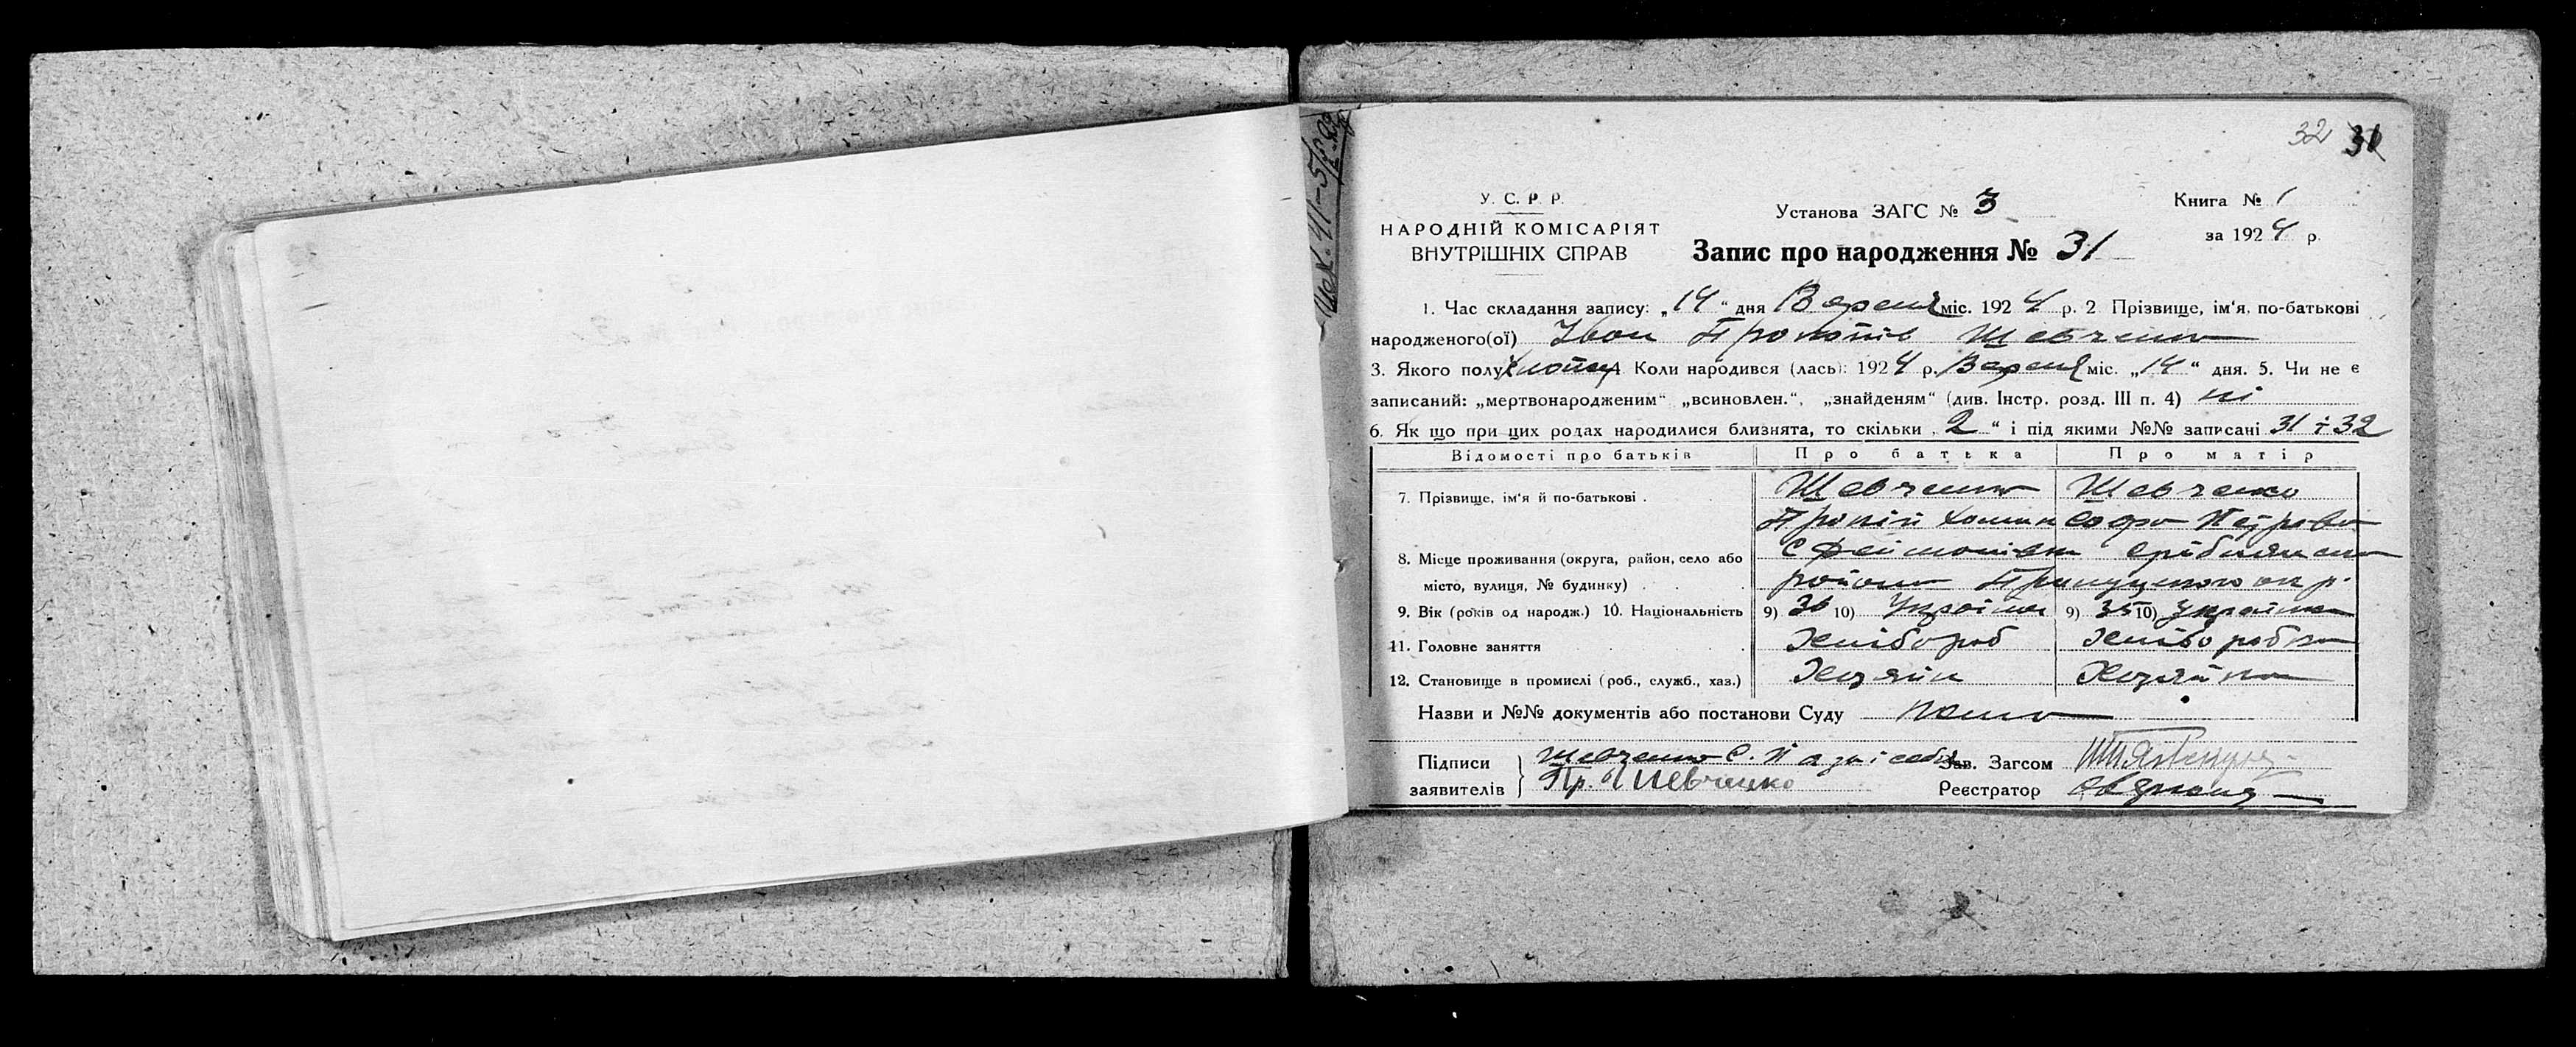 32 31
У. С. Р. Р.
НАРОДНІЙ КОМІСАРІЯТ
ВНУТРІШНІХ СПРАВ
Установа ЗАГС № 3
Книга № 1
за 1924 р.
Запис про народження № 31
1. Час складання запису: „14“ дня Вересня міс. 1924 р. 2 Прізвище, ім'я, по-батькові
народженого(ої) Іван Прокопів Шевченко
3. Якого полу Хлопец 4. Коли народився (лась): 1924 р. Вересня міс. „14“ дня. 5. Чи не є
записаний: „мертвонародженим“ „всиновлен.“, „знайденям“ (див. Інстр. розд. III п. 4) ні
6. Як що при цих родах народилися близнята, то скільки „2“ і під якими №№ записані 31 і 32
Відомості про батьків Про батька Про матір
7. Прізвище, ім'я й по-батькові . Шевченко Шевченко
Прокіп Хомин Петровна
8. Місце проживання (округа, район, село або С Срібнянского
місто, вулиця, № будинку) . району Прилуцького окр.
9. Вік (років од народж.) 10. Національність 9) 36 10) Україн 9) 35 10) Українка
11. Головне заняття Хлібороб Хлібо робка
12. Становище в промислі (роб., служб., хаз.) Хозяїн Хозяйка
Назви и №№ документів або постанови Суду
Підписи Шевченко С. П а за і себя Зав. Загсом
заявителів Пр. Шевченко Реєстратор